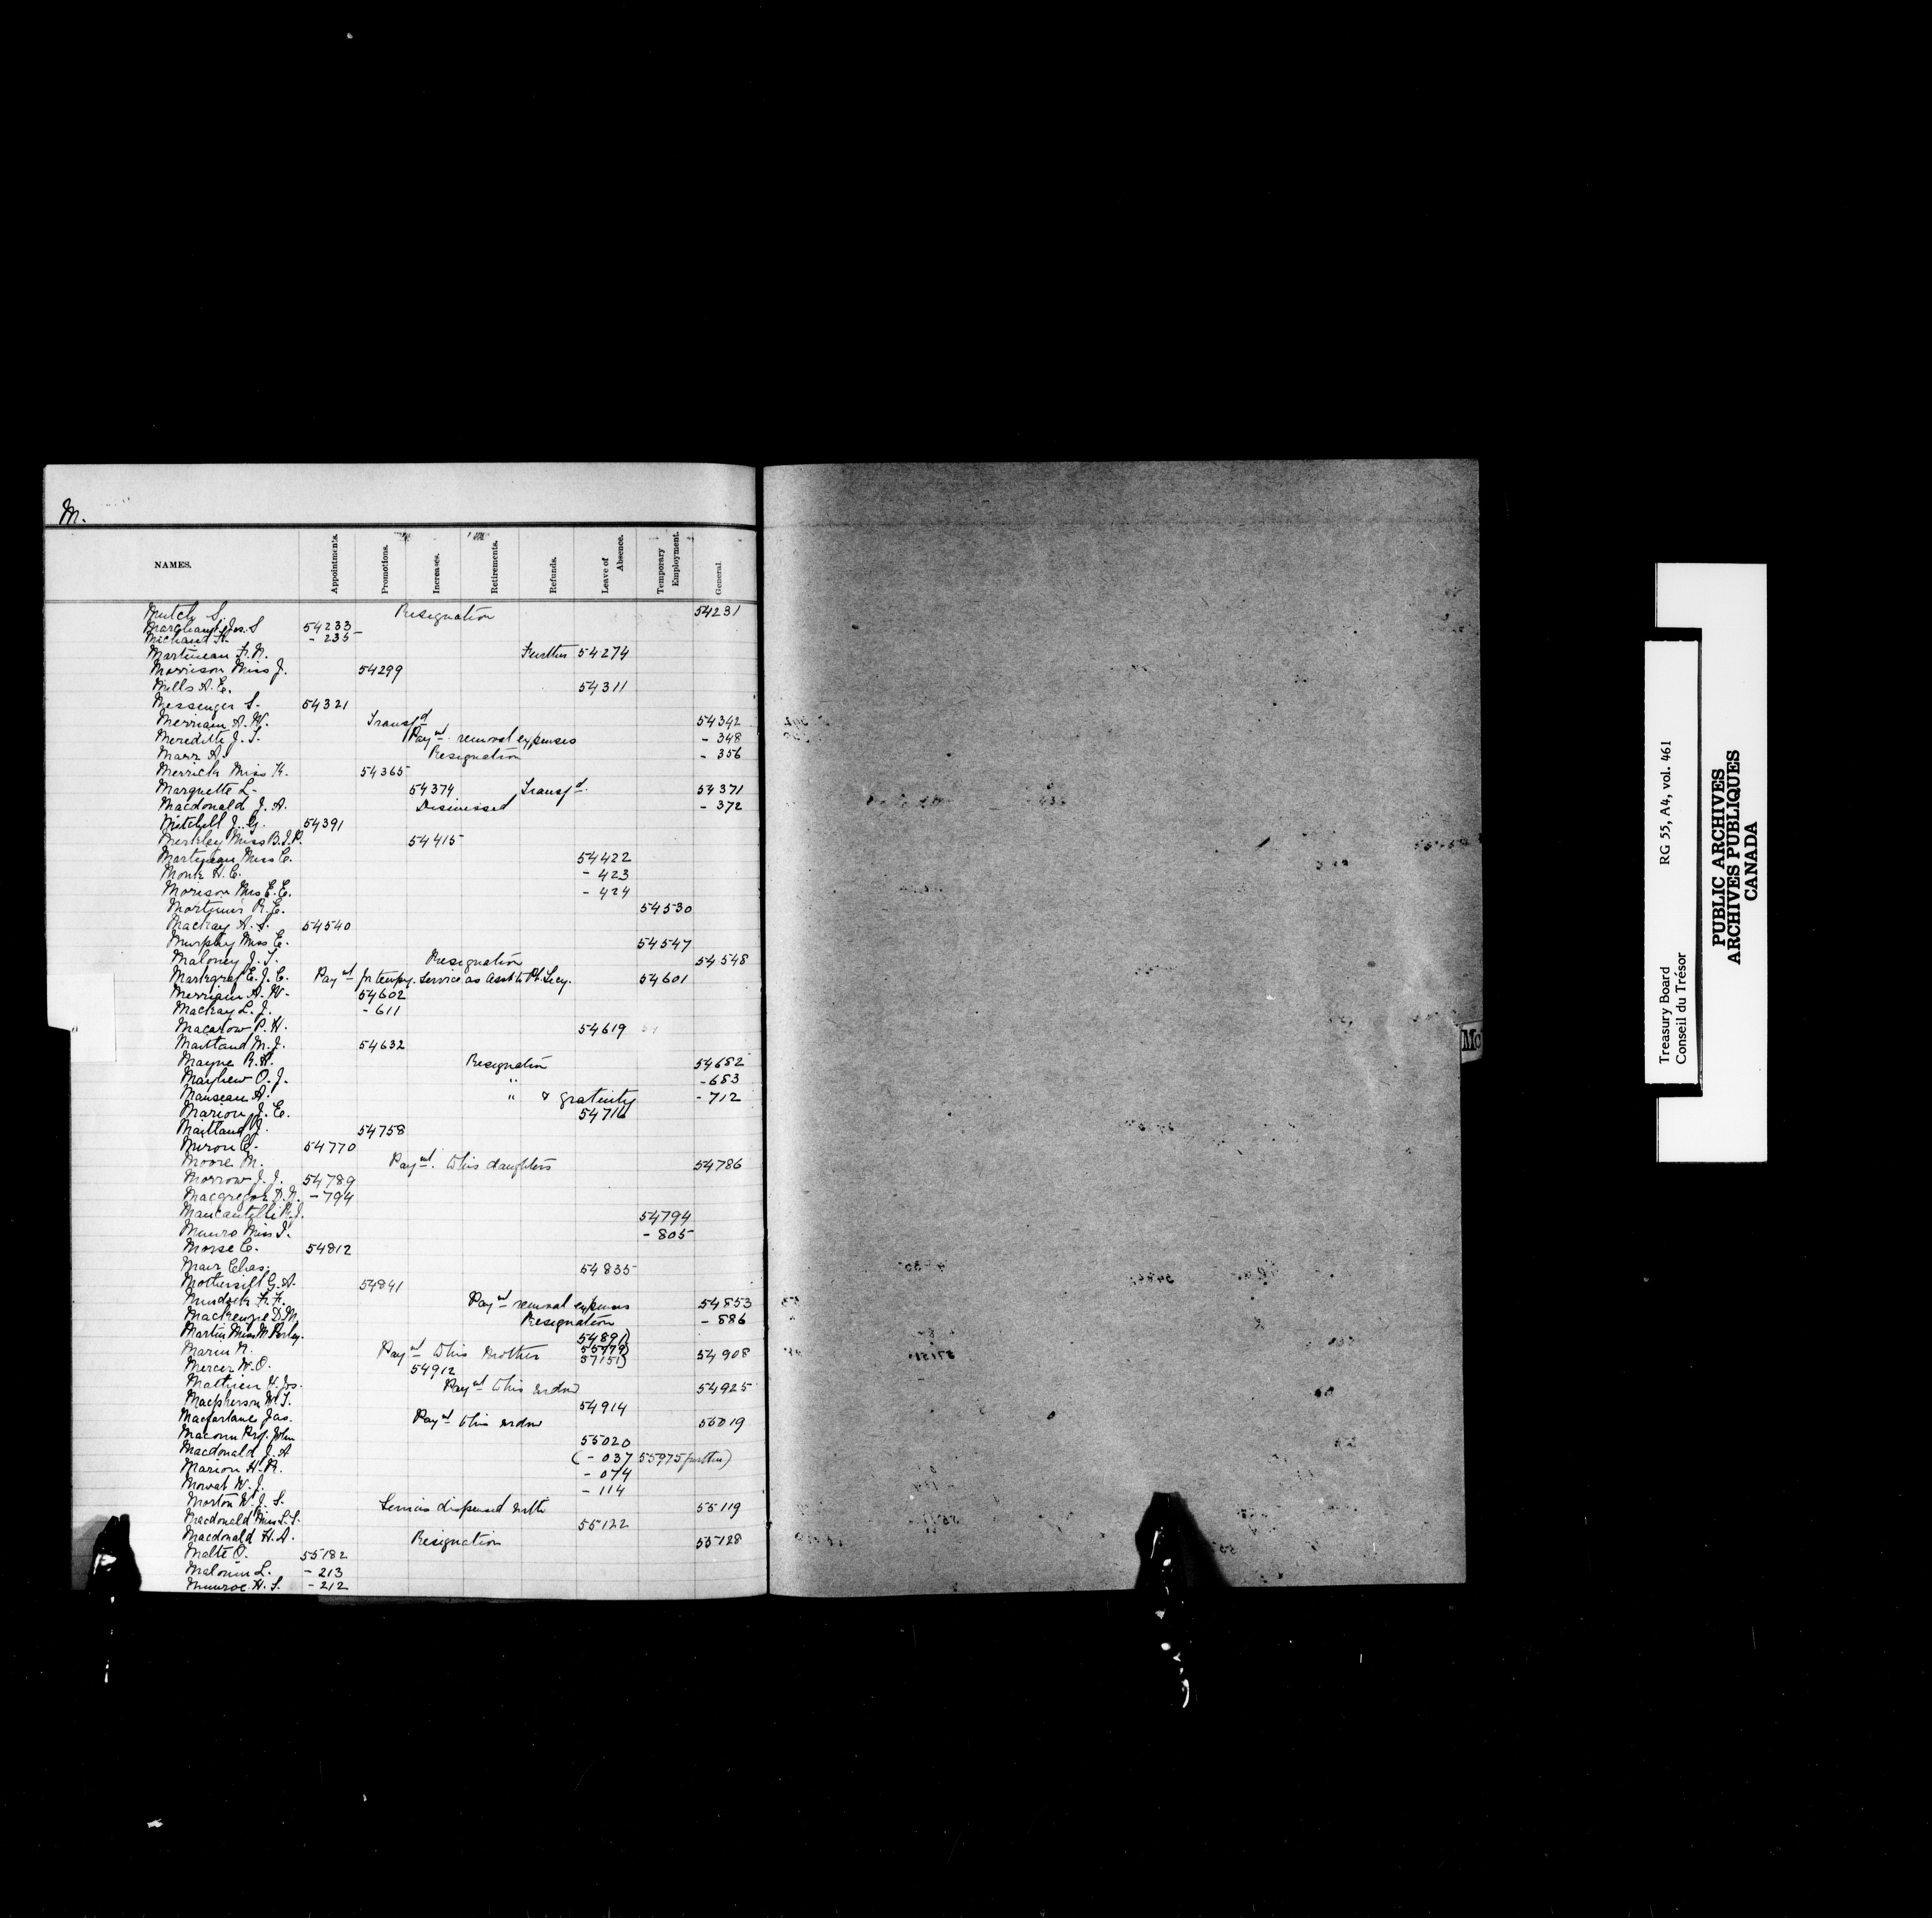 M.
NAMES. Appointments. Promotions. Increases. Retirements. Refunds. Leave of Absence. Temporary Employment. General.
Mutch S. Resignation 54231
Marchand Jos. S 54233
Michaud H. - 235
Martineau F. N. Further 54274
Morrison Miss J. 54299
Mills A. E. 54311
Messenger S. 54321
Merriam A. W. Transfd 54342
Meredith J. T. Paymt. removal expenses - 348
Marr A. Resignation - 356
Merrick Miss K. 54365
Marquette L. 54374 Transfd. 54371
Macdonald J. A. Dismissed - 372
Mitchell J. G. 54391
Merkley Miss B. I. P. 54415
Martineau Miss C. 54422
Monk H. C. - 423
Morison Miss E. E. - 424
Mortimer R. E. 54530
Mackay A. S. 54540
Murphy Miss E. 54547
Maloney J. T. Resignation 54548
Markgraf E. J. C. Paymt for tempy. service as Asst to Pt. Secy. 54601
Merriam A. W. 54602
Mackay L. J. - 611
Macarow P. H. 54619
Maitland M. J. 54632
Mayne R. H. Resignation 54682
Mayhew O. J. " - 683
Manseau A. " & gratuity - 712
Marion J. E. 54716
Maitland J. 54758
Miron C. 54770
Moore M. Paymt. to his daughters 54786
Morrow J. J. 54789
Macgregor D. N. - 794
Mancantelli R. J. 54794
Munro Miss I. - 805
Morse C. 54812
Mair Chas. 54835
Mothersill G. A. 54841
Murdock F. F. Paymt removal expenses 54853
Mackenzie D. M. Resignation - 886
Martin Miss M. 54891)
Marin N. Paymt to his mother 55979) 57151) 54908
Mercer W. O. 54912
Mathieu H. Jos. Paymt to his widow 54925
Macpherson W. T. 54914
Macfarlane Jas. Paymt to his widow 55019
Macoun Prof. John 55020
Macdonald J. A (- 037 55975 further)
Marion H. R. - 074
Mowat W. J. - 114
Morton W. J. S. Services dispensed with 55119
Macdonald Miss L. S. 55122
Macdonald H. A. Resignation 55128
Malte O. 55182
Malouin L. - 213
Munroe H. S. - 212
Mc
Treasury Board RG 55, A4, vol. 461
Conseil du Trésor
PUBLIC ARCHIVES
ARCHIVES PUBLIQUES
CANADA